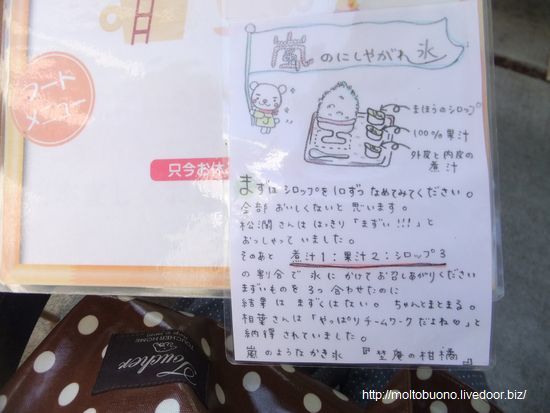 フード
メニュー
只今お休
嵐のにしやがれ氷
まほうのシロップ
100%果汁
外皮と内皮の
煮汁
まずはシロップを1口ずつなめてみてください。
全部おいしくないと思います。
松潤さんははっきり「まずい!!!」と
おっしゃっていました。
そのあと 煮汁1:果汁2:シロップ3
の割合で氷にかけてお召しあがりください
まずいものを3つ合わせたのに
結果はまずくはない。ちゃんとまとまる。
相葉さんは「やっぱりチームワークだよね♡」と
納得されていました。
嵐のようなかき氷 『笠庵の柑橘』
Toucher
TOUCHER HOME
http://moltobuono.livedoor.biz/